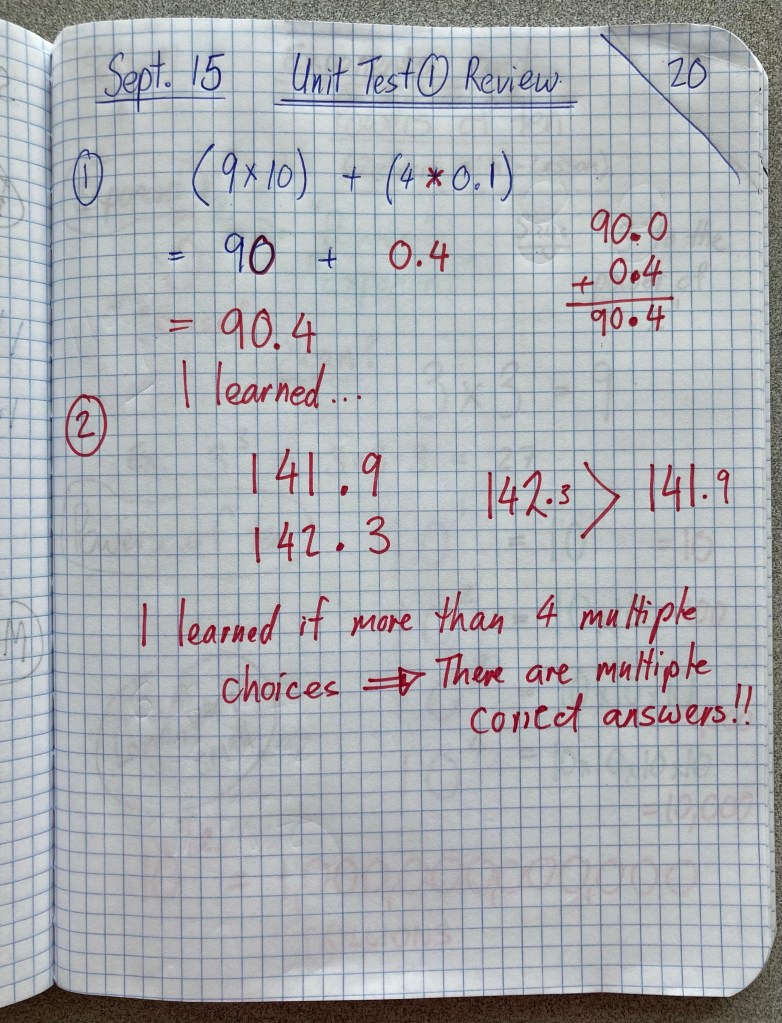 Sept. 15 Unit Test ① Review 20
① (9×10) + (4 * 0.1)
= 90 + 0.4
= 90.4
90.0
+ 0.4
90.4
I learned...
②
141.9
142.3
142.3 > 141.9
I learned if more than 4 multiple
choices ⇒ There are multiple
correct answers!!